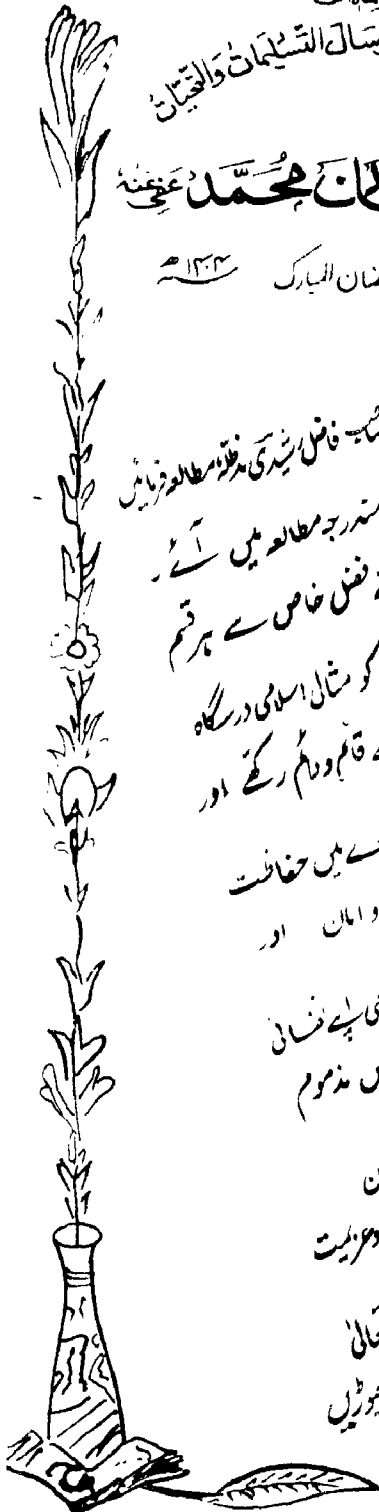 رسال التسلیمات والتحیات
خان محمد عفی عنہ
ضان المبارک ۱۴۰۴ھ
صاحب فاضل رشیدی مدظلہ مطالعہ فرمائیں
مندرجہ مطالعہ میں آئے۔
فضل خاص سے ہر قسم
کو مثالی اسلامی درسگاہ
قائم و دائم رکھے اور
میں حفاظت
و امان اور
نفسانی
مذموم
ن
وعزیمت
تعالیٰ
چوڑیں